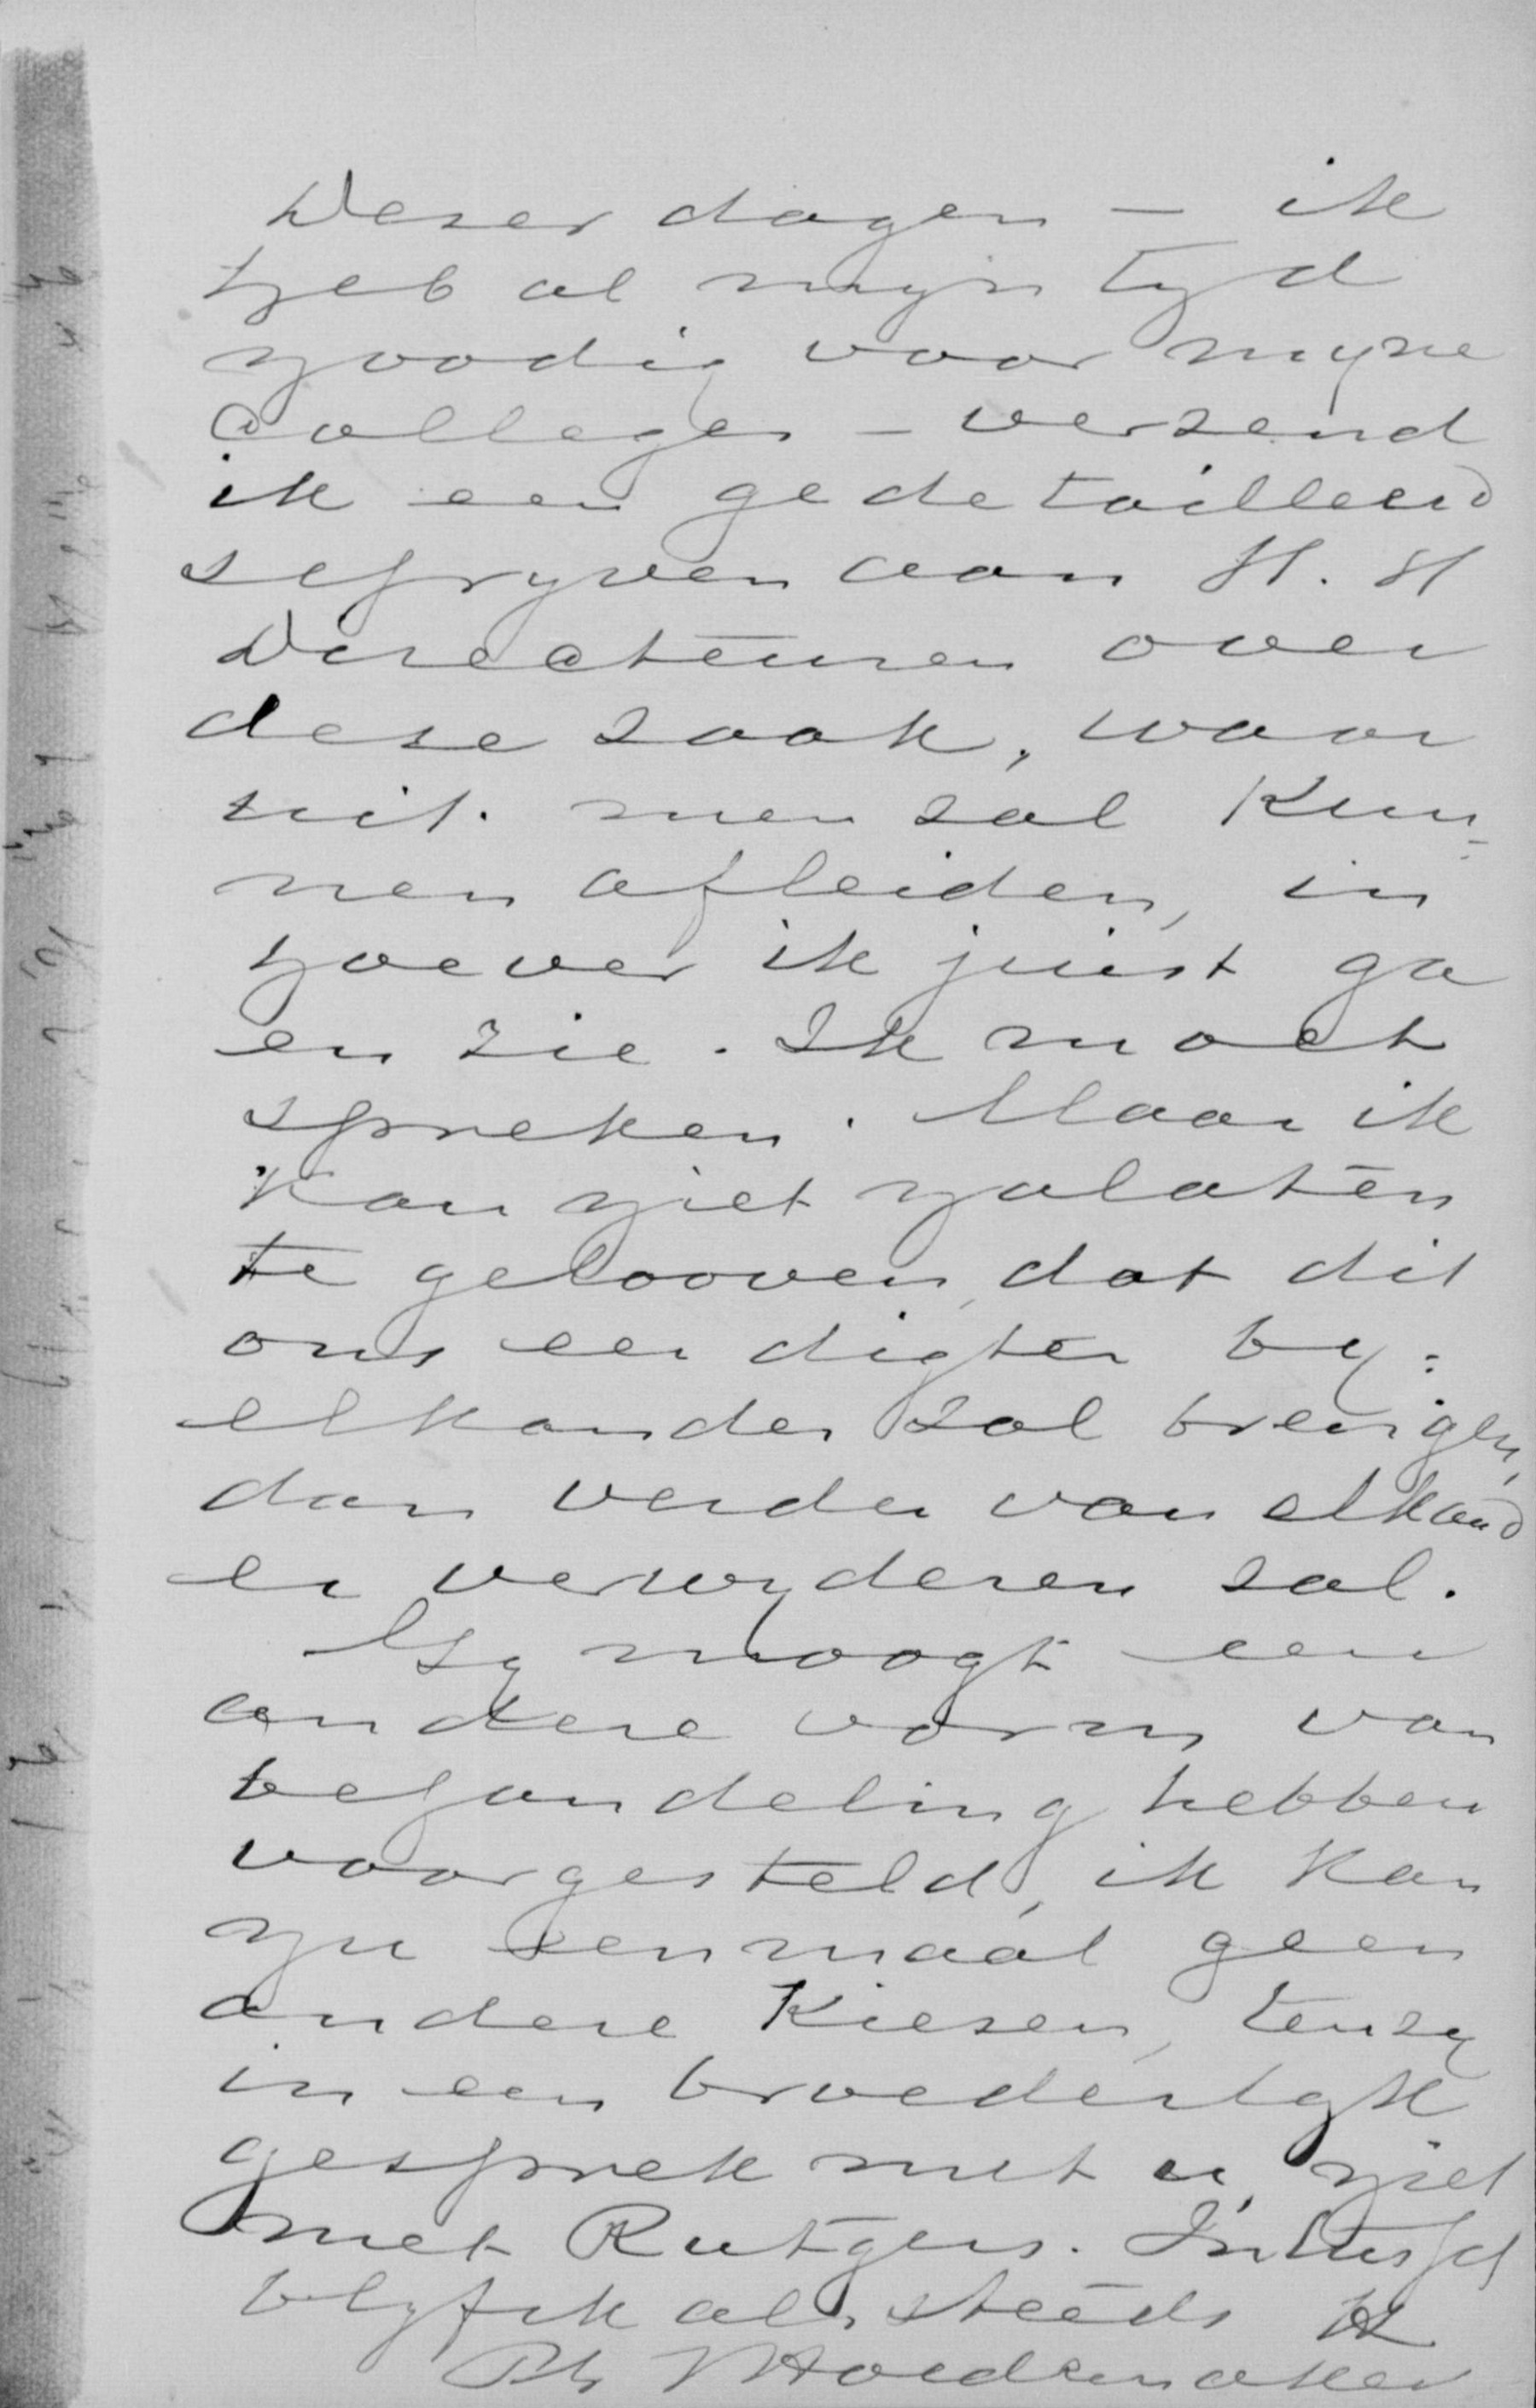 Dezer dagen — ik
heb al mijn tyd
noodig voor myne
Colleges — verzend
ik een gedetailleerd
schryven aan H.H
Directeuren over
deze zaak, waar
uit men zal kun-
nen afleiden, in
hoever ik juist ga
en zie. Ik moet
spreken. Maar ik
kan niet nalaten
te gelooven, dat dit
ons eer digter by=
elkander zal brengen,
dan verder van elkand
er verwyderen zal.
Gy moogt een
andere vorm van
behandeling hebben
voorgesteld, ik kan
nu eenmaal geen
andere kiezen, tenzy
in een broederlyk
gesprek met u, niet
met Rutgers. Intusch
blyf ik als steeds
Ph J Hoedemaker